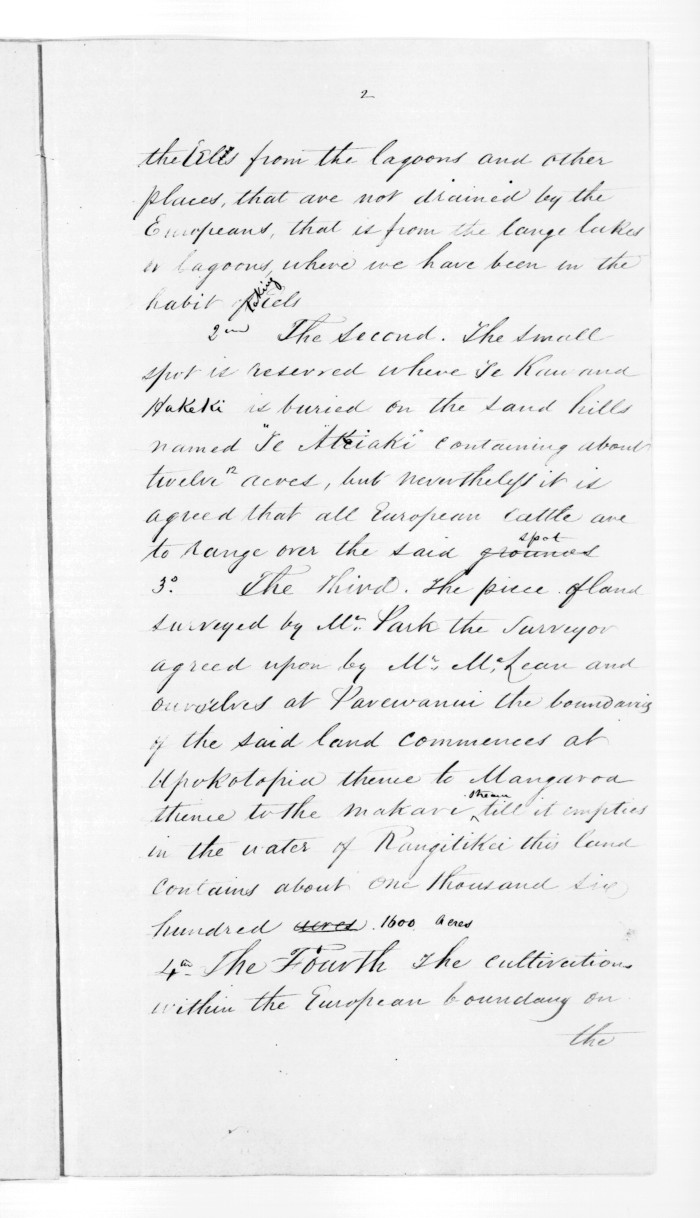 2
the Eels from the lagoons and other
places, that are not drained by the
Europeans, that is from the large lakes
or lagoons, where we have been in the
habit of taking eels
2nd The Second. The small
spot is reserved where Te Kawand
Hakeki is buried on the sand hills
named "Te Akeiaki" containing about
twelve acres, but nevertheless it is
agreed that all European cattle are
to range over the said grounds spot
3o. The Third. The piece of land
surveyed by Mr. Park the Surveyor
agreed upon by Mr. McLean and
ourselves at Parewanui the boundaries
of the said land commences at
Upokotopia thence to Mangaroa
thence to the Makari stream till it empties
in the water of Rangitikei this land
contains about one thousand six
hundred acres. 1600 Acres
4th. The Fourth The cultivations
within the European boundary on
the